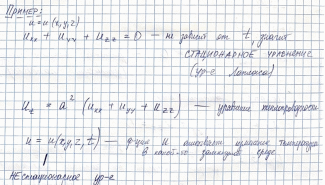 Пример:
u = u(x,y,z)
u_xx + u_yy + u_zz = 0 — не зависит от t значит
стационарное уравнение
(ур-е Лапласа)
u_t = a² (u_xx + u_yy + u_zz) — уравнение теплопроводности
u = u(x,y,z,t) — ф-ция u описывает изменение температуры
в какой-то замкнутой среде
нестационарное ур-е